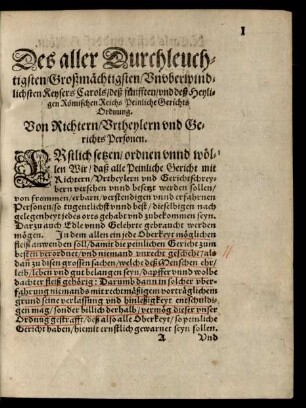 I
Des aller Durchleuch-
tigsten/Großmächtigsten/Vnüberwind-
lichsten Keysers Carols/deß fünfften/vnnd deß Heyli-
gen Römischen Reichs Peinliche Gerichts
Ordnung.
Von Richtern/Vrtheylern vnd Ge-
richts Personen.
ERstlich setzen/ordnen vnnd wöl-
len Wir/daß alle Peinliche Gericht mit
Richtern/Vrtheylern vnd Gerichtschrey-
bern versehen vnnd besetzt werden sollen/
von frommen/erbarn/verstendigen vnnd erfahrnen
Personen/so tugentlichst vnnd best/dieselbigen nach
gelegenheyt jedes orts gehabt vnd zubekommen seyn.
Darzu auch Edle vnnd Gelehrte gebraucht werden
mögen. In dem allen ein jede Oberkeyt möglichen
fleiß anwenden soll/damit die peinlichen Gericht zum
besten verordnet/vnd niemand vnrecht geschehe/als
dan zu disen grossen sachen/welche deß Menschen ehr/
leib/leben vnd gut belangen seyn/dapffer vnnd wolbe
dachter fleiß gehörig: Darumb dann in solcher vber-
fahrung niemands mit rechtmässigem vorträglichem
grund seine verlassung vnd hinleßigkeyt entschuldi-
gen mag/sonder billich derhalb/vermög dieser vnser
Ordnung gestrafft/deß also alle Oberkeyt/so peinliche
Gericht haben/hiemit ernstlich gewarnet seyn sollen.
A Vnd